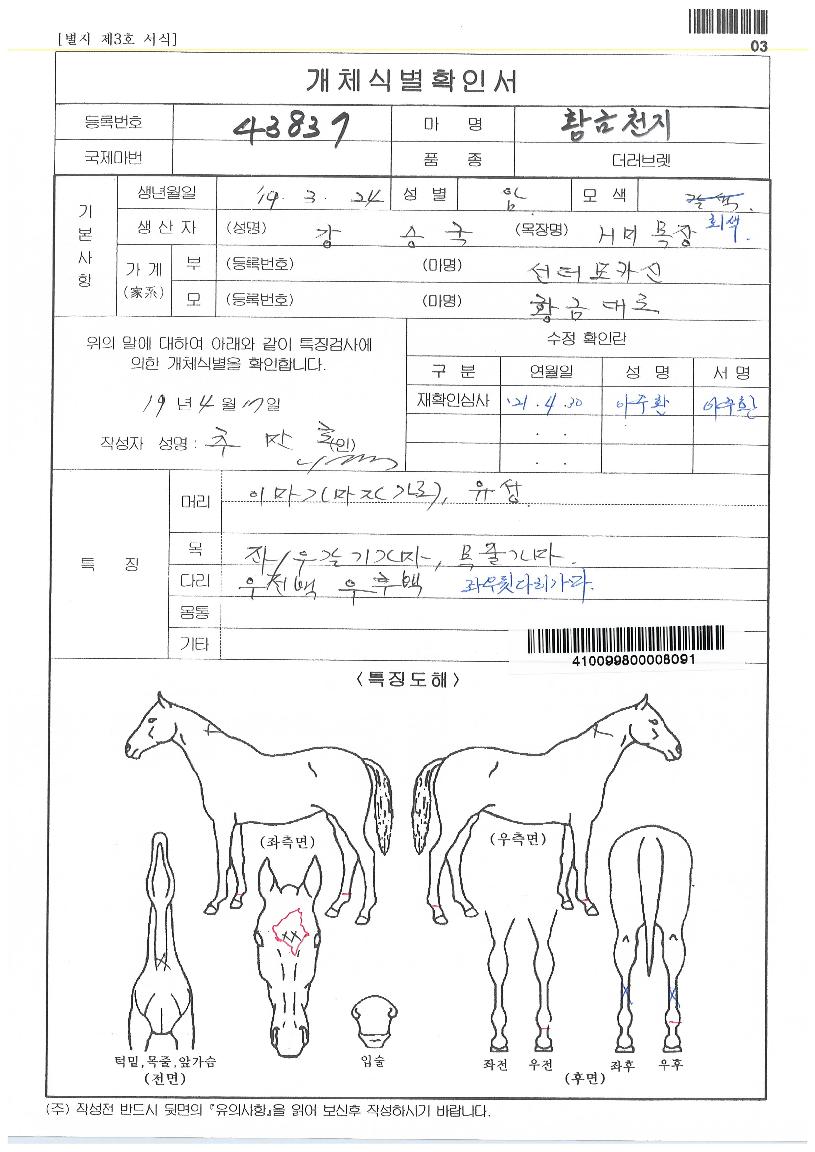 [별지 제3호 서식]
03
개체식별확인서
등록번호 43837 마 명 황금천지
국제마번 품 종 더러브렛
기본사항
생년월일 '19. 3. 24 성 별 암 모 색 갈색.
회색.
생 산 자 (성명) 강 승 국 (목장명) 목장
가 계 (家系) 부 (등록번호) (마명) 선더모카신
모 (등록번호) (마명) 황금대로
위의 말에 대하여 아래와 같이 특징검사에
의한 개체식별을 확인합니다.
19 년 4 월 일
작성자 성명 : 주 만 (인)
수정 확인란
구 분 연월일 성 명 서 명
재확인심사 '21. 4. 30
. .
. .
특 징
머리 유성
목
다리 우전백 우후백 좌우뒷다리가마.
몸통
기타
410099800008091
<특징도해>
(좌측면) (우측면)
턱밑,목줄,앞가슴 입술 좌전 우전 좌후 우후
(전면) (후면)
(주) 작성전 반드시 뒷면의 『유의사항』을 읽어 보신후 작성하시기 바랍니다.